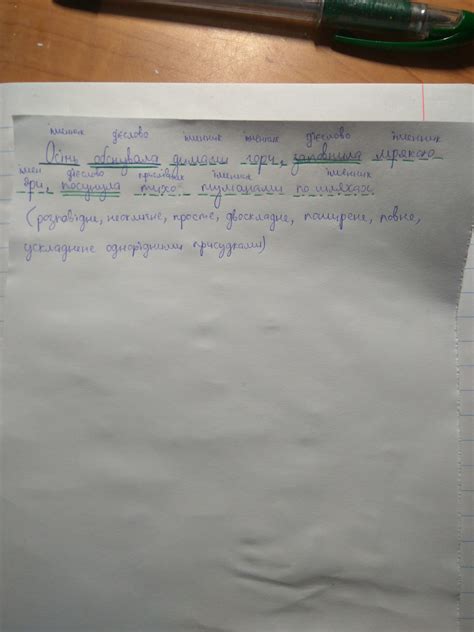 іменник дієслово іменник іменник дієслово іменник
Осінь обснувала димами гори, заповнила мракою
імен дієслово прислівник іменник іменник
яри, посунула тихо туманами по шляхах
(розповідне, неоклична, просте, двоскладне, поширене, повне,
ускладнене однорідними присудками)